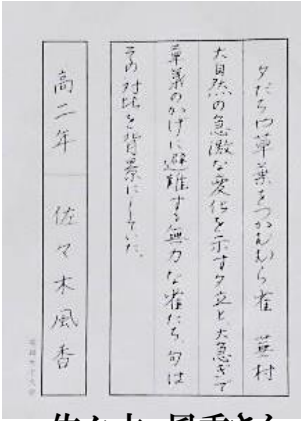 夕だちや草葉をつかむむら雀 蕪村
大自然の急激な変化を示す夕立と大急ぎで
草葉のかげに避難する無力な雀たち、句は
その対比を背景にしていた。
高二年 佐々木風香